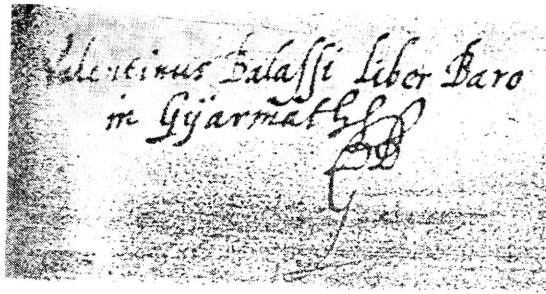 Valentinus Balassi liber Baro
in Gÿarmath